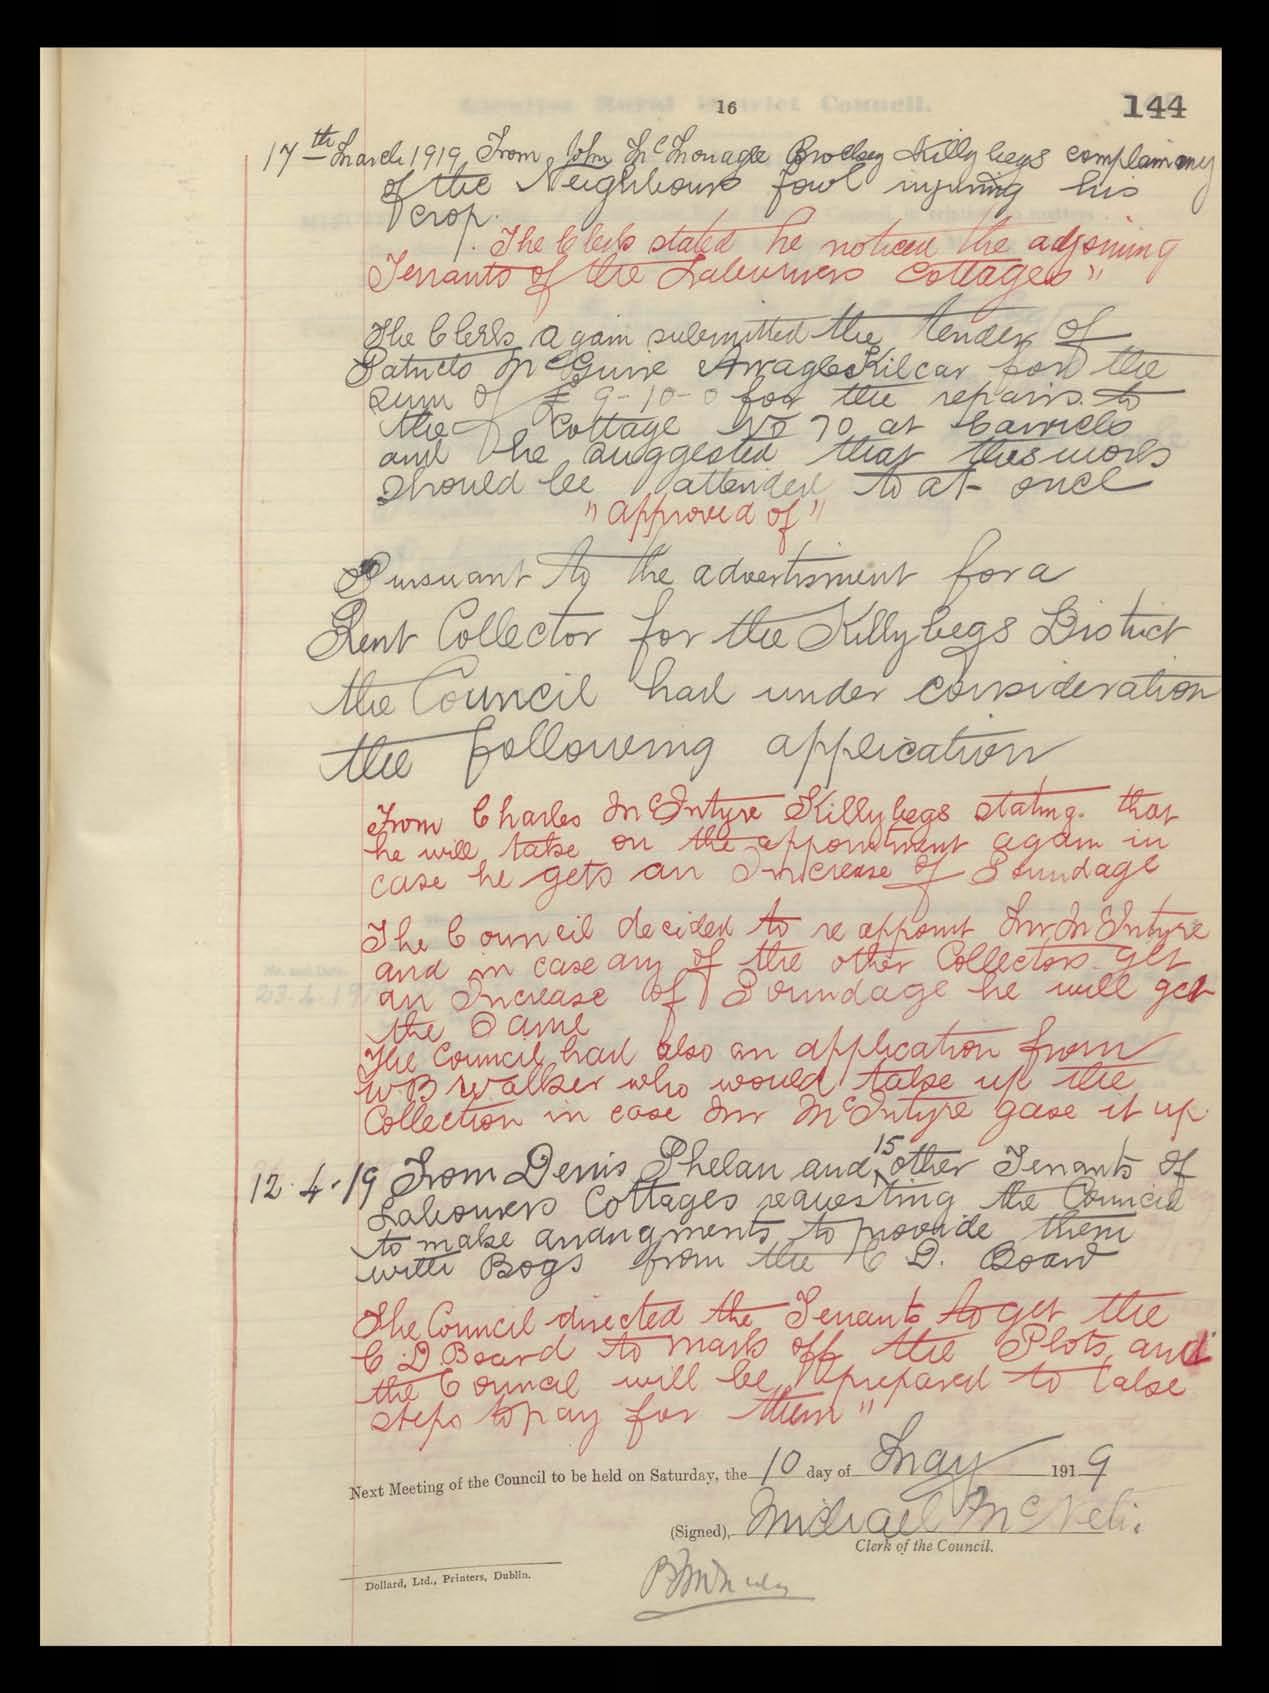 16
144
17th March 1919 From John McMonagle Killybegs complaining
of the Neighbours fowl injuring his
crop.
The Clerk stated he noticed the adjoining
Tenants of the Labourers Cottages"
The Clerk again submitted the tender of
Patrick McGuire Kilcar for the
sum of £9-10-0 for the repairs to
the Cottage No 70 at Carrick
and he suggested that this work
should be attended to at once
"approved of"
Pursuant to the advertisment for a
Rent Collector for the Killybegs District
the Council had under consideration
the following application
From Charles McIntyre Killybegs stating that
he will take on the appointment again in
case he gets an Increase of Poundage
The Council decided to re appoint Mr McIntyre
and in case any of the other Collectors get
an Increase of Poundage he will get
the Same
The Council had also an application from
W B Walker who would take up the
Collection in case Mr McIntyre gave it up
12.4.19 From Denis Phelan and 15 other Tenants of
Labourers Cottages requesting the Council
to make arrangments to provide them
with Bogs from the C D. Board
The Council directed the Tenants to get the
C D Board to mark off the Plots and
the Council will be prepared to take
steps to pay for them"
Next Meeting of the Council to be held on Saturday, the 10 day of May 1919
(Signed), Michael McNeli.
Clerk of the Council.
Dollard, Ltd., Printers, Dublin.